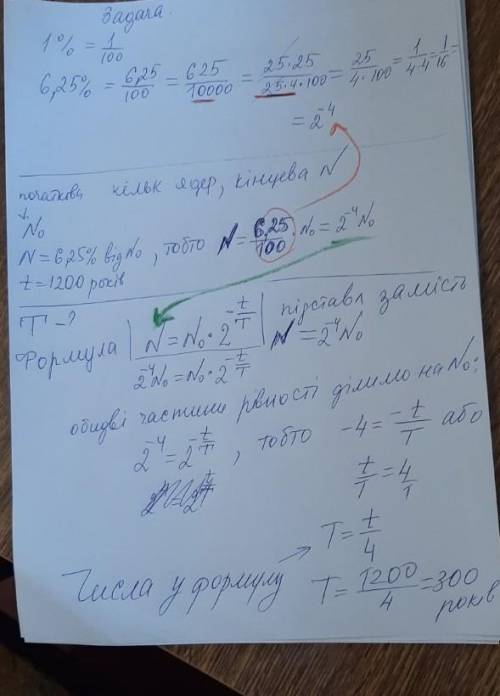 Задача.
1% = 1/100
6,25% = 6,25/100 = 625/10000 = 25·25/25·4·100 = 25/4·100 = 1/4·4 = 1/16 =
= 2⁻⁴
початкова кільк ядер, кінцева N
↓
N₀
N = 6,25% від N₀, тобто N = 6,25/100 · N₀ = 2⁻⁴N₀
t = 1200 років
T - ?
Формула | N = N₀ · 2^(-t/T) | підставл замість
2⁻⁴N₀ = N₀ · 2^(-t/T) N = 2⁻⁴N₀
обидві частини рівності ділимо на N₀:
2⁻⁴ = 2^(-t/T), тобто -4 = -t/T або
t/T = 4/1
T = t/4
Числа у формулу T = 1200/4 = 300
років